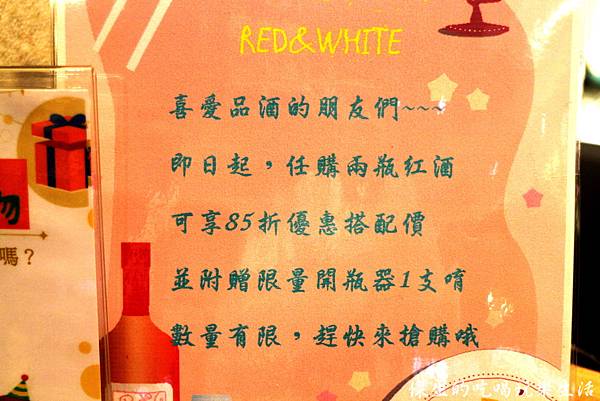 RED&WHITE
喜愛品酒的朋友們~~~
即日起，任購兩瓶紅酒
可享85折優惠搭配價
並附贈限量開瓶器1支唷
數量有限，趕快來搶購哦
物
嗎？
的吃喝玩樂生活